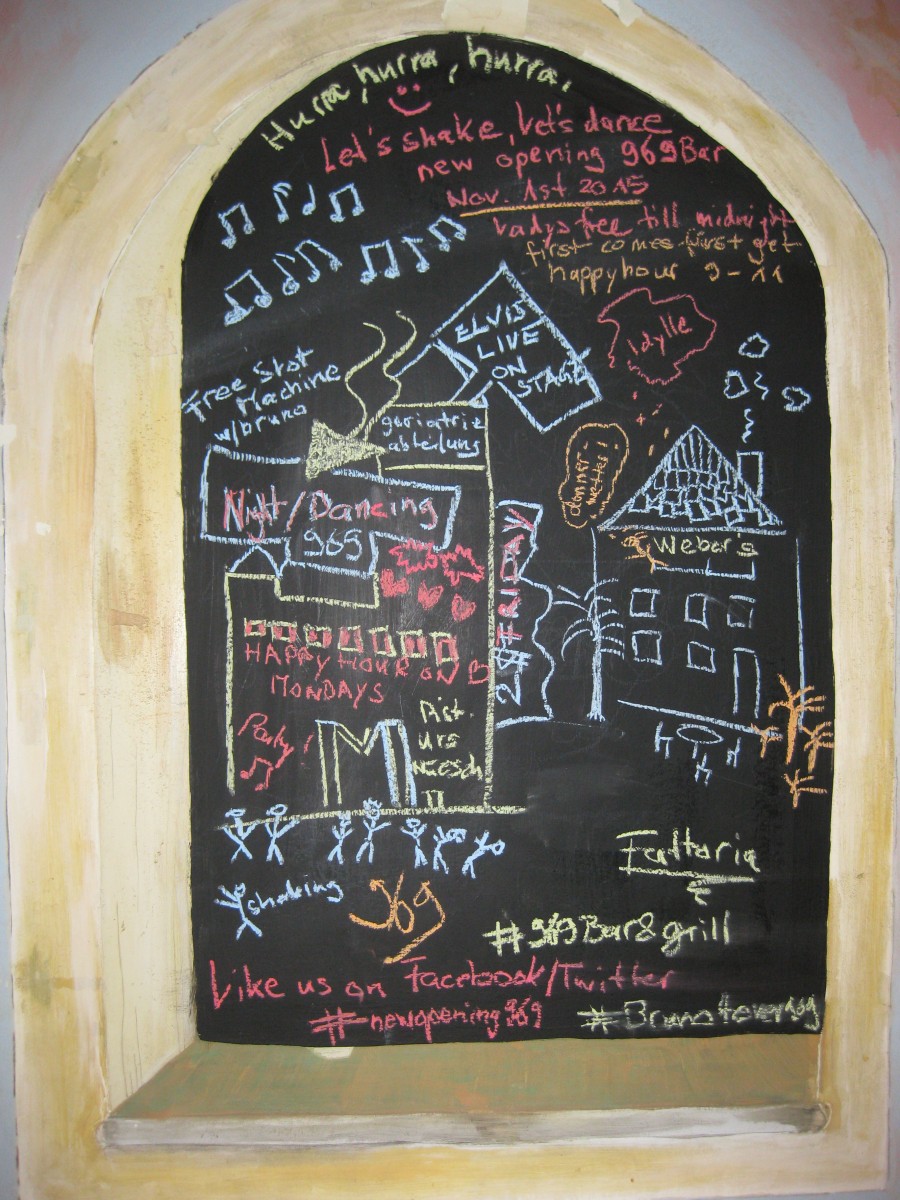 Hurra, hurra, hurra,
Let's shake, Let's dance
new opening 969 Bar
Nov. 1st 2015
Ladys free till midnight
first comes first get
happyhour 9-11
ELVIS
LIVE
ON
STAGE
Idylle
Free Shot
Machine
w/bruno
geriatrie
abteilung
donner
wetter!
Night/Dancing
969
Weber's
FRIDAY
HAPPY HOUR ON
MONDAYS
Party!
Pist.
Urs
Nüesch
Fattoria
shaking
969
#969Bar&grill
Like us on Facebook/Twitter
#newopening969
#Bruno4ever969